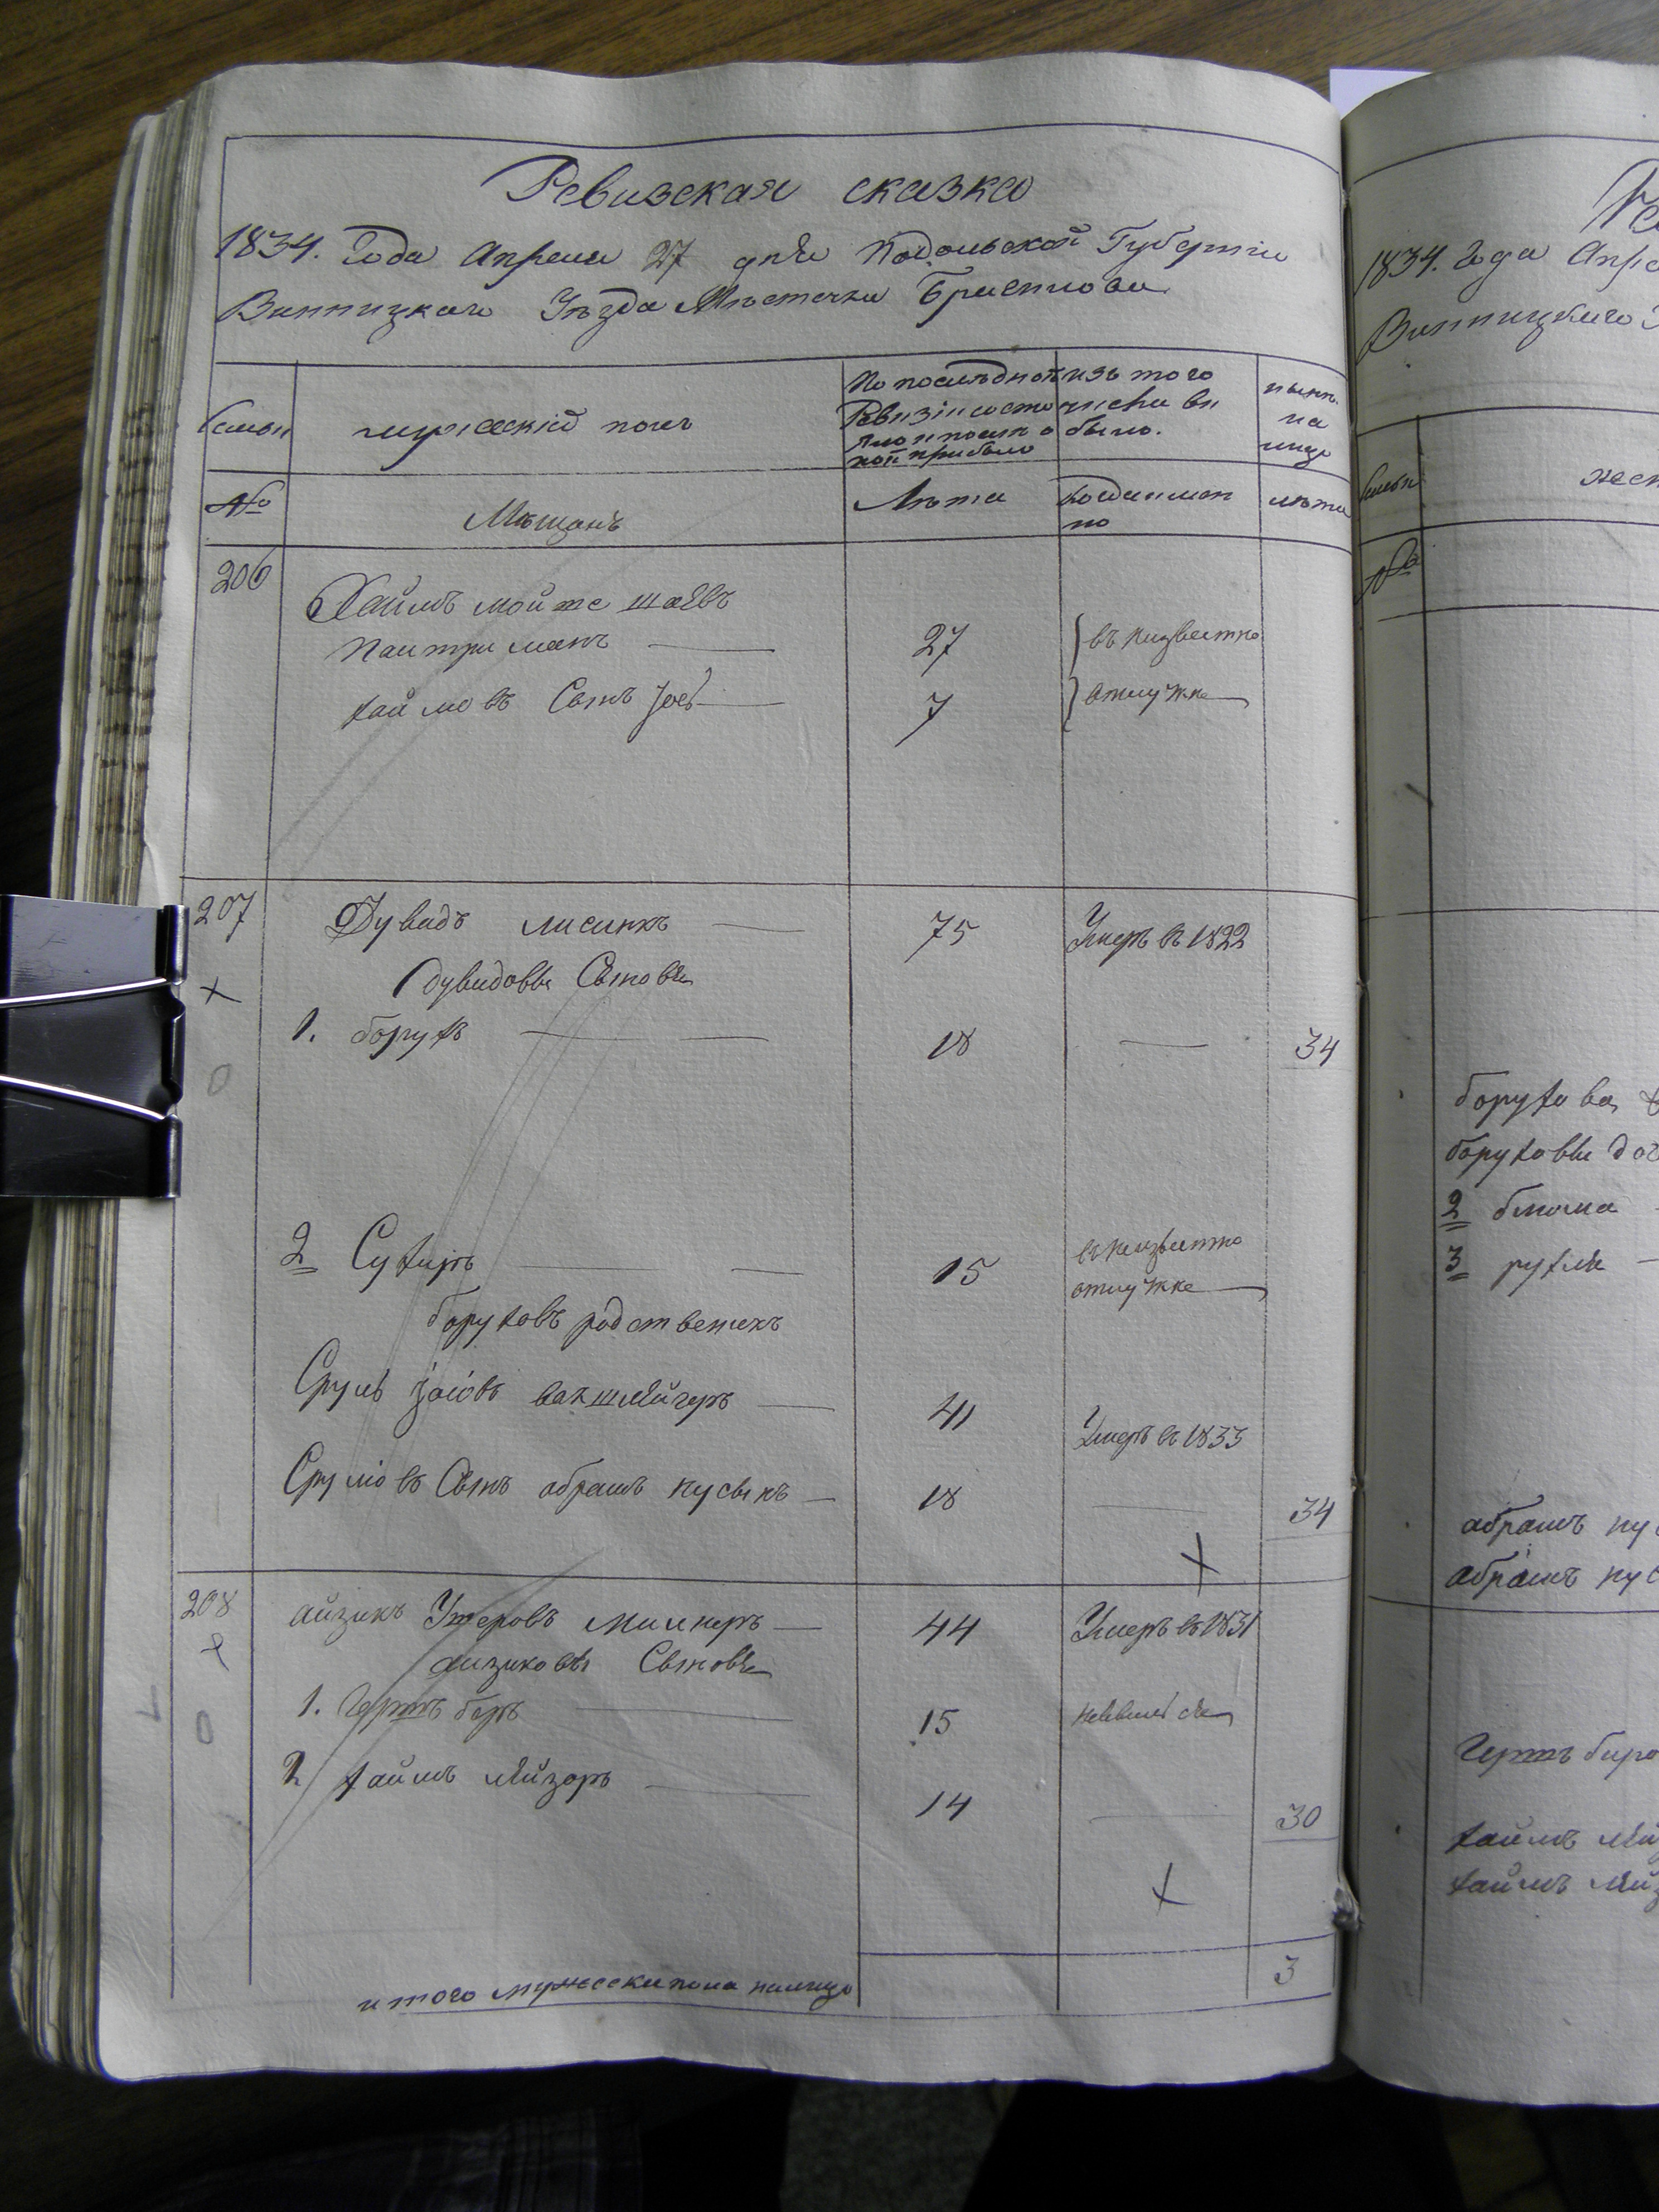 Ревизская сказка
1834. Года Апреля 27 дня Подольской Губерніи
Винницкаго Уѣзда Мѣстечка Браилова
семьи
мужескій полъ
По последней
Ревизіи состо
яло и после о
ной прибыло
изъ того
числа вы
было.
ныне
на
лицо
№
Мѣщанъ
Лѣта
когда имен
но
лѣта
206
Хаимъ мойше шаевъ
Пантриманъ
27
въ неизвестно
хаимовъ Сынъ Іосъ
7
отлучке
207
Дувидъ лисинкъ
75
Умеръ въ 1822
дувидовы Сыновья
1. борухъ
18
34
2 Сухиръ
15
въ неизвестно
отлучке
боруховъ родственикъ
Сруль
41
Умеръ въ 1833
Сруліовъ Сынъ абрамъ нусынъ
18
34
208
айзикъ Ушеровъ милнеръ
44
Умеръ въ 1831
аизиковы Сыновья
1. Гершъ беръ
15
неявился
2 хаимъ лейзоръ
14
30
итого мужеска пола налицо
3
1834. Года Апре
Винницкаго
семьи
жес
№
борухова
боруховы доч
2 блюма
3 рухля
абрамъ ну
абрамъ нус
Гершъ беро
хаимъ лей
хаимъ лейз